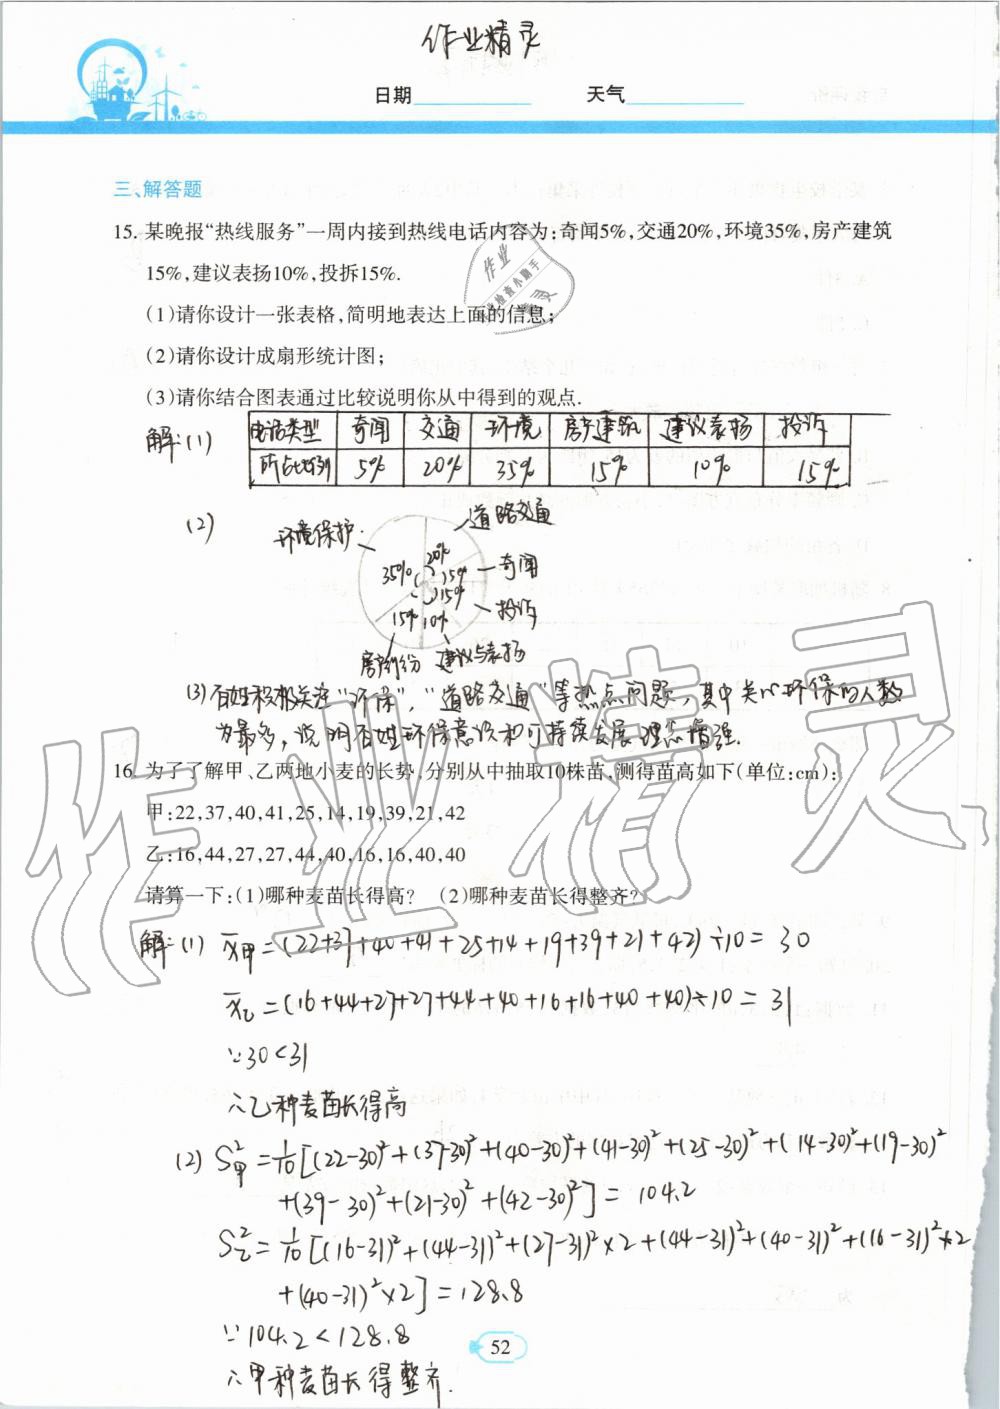 作业精灵
日期 天气
三、解答题
15. 某晚报“热线服务”一周内接到热线电话内容为:奇闻5%,交通20%,环境35%,房产建筑
15%,建议表扬10%,投拆15%.
(1)请你设计一张表格,简明地表达上面的信息;
(2)请你设计成扇形统计图;
(3)请你结合图表通过比较说明你从中得到的观点.
解:(1)
电话类型 奇闻 交通 环境 房产建筑 建议表扬 投诉
所占比例 5% 20% 35% 15% 10% 15%
(2)
环境保护 道路交通
35% 20% 15% 奇闻
15% 投诉
15% 10%
建议与表扬
(3)百姓积极关注“环保”,“道路交通”等热点问题,其中关心环保的人数
为最多,说明百姓环保意识和可持续发展理念增强.
16. 为了了解甲、乙两地小麦的长势,分别从中抽取10株苗,测得苗高如下(单位:cm):
甲:22,37,40,41,25,14,19,39,21,42
乙:16,44,27,27,44,40,16,16,40,40
请算一下:(1)哪种麦苗长得高? (2)哪种麦苗长得整齐?
解:(1) x̄甲=(22+37+40+41+25+14+19+39+21+42)÷10=30
x̄乙=(16+44+27+27+44+40+16+16+40+40)÷10=31
∵30<31
∴乙种麦苗长得高
(2) S²甲=1/10[(22-30)²+(37-30)²+(40-30)²+(41-30)²+(25-30)²+(14-30)²+(19-30)²
+(39-30)²+(21-30)²+(42-30)²]=104.2
S²乙=1/10[(16-31)²+(44-31)²+(27-31)²×2+(44-31)²+(40-31)²+(16-31)²×2
+(40-31)²×2]=128.8
∵104.2<128.8
∴甲种麦苗长得整齐.
52
作业精灵